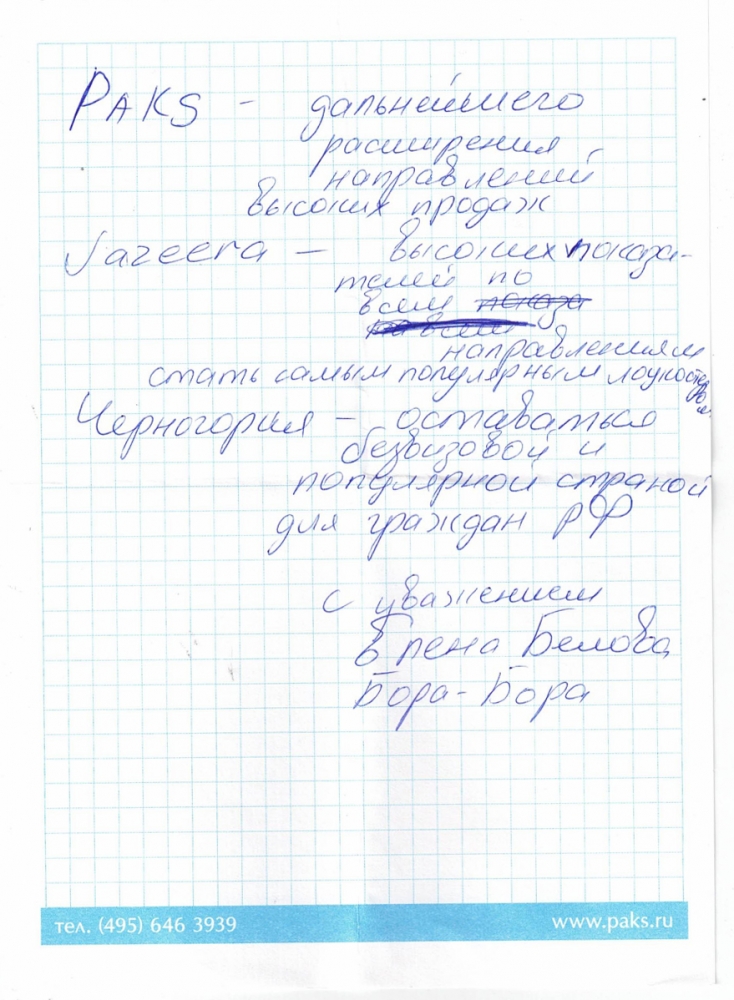 PAKS - дальнейшего
расширения
направлений
высоких продаж
Jazeera — высоких показа-
телей по
всем показа
по всем
направлениям
стать самым популярным лоукостером
Черногория — оставаться
безвизовой и
популярной страной
для граждан РФ
с уважением
Елена Белова
Бора-Бора
тел. (495) 646 3939
www.paks.ru